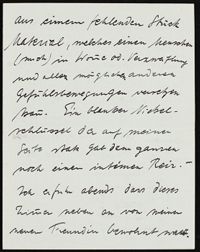 aus einem fehlenden Stück
Material, welches einen Menschen
(mich) in Wonne od. Verzweiflung
und allen möglichen anderen
Gefühlsbewegungen versetzen
kann. Ein blanker Nickel-
schlüssel der auf meiner
Seite stak gab dem ganzen
noch einen intimen Reiz. -
Ich erfuhr abends dass dieses
Zimmer neben an von meiner
neuen Freundin bewohnt